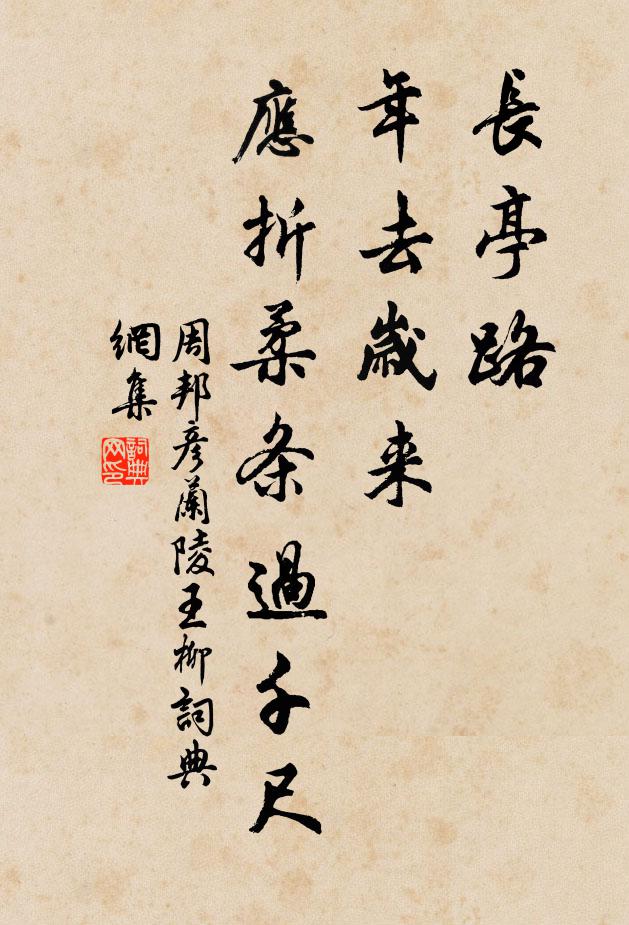 長亭路
年去歲来
應折柔条過千尺
周邦彦蘭陵王柳詞典
網集
詞典網印